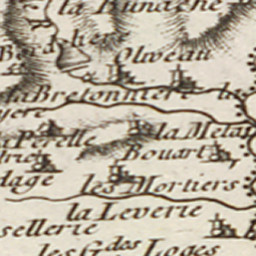 la Bunache
Olweau
la Bretonniere
Perelle
la Metas
Bouart
dage
les Mortiers
la Leverie
sellerie
les G des Loges